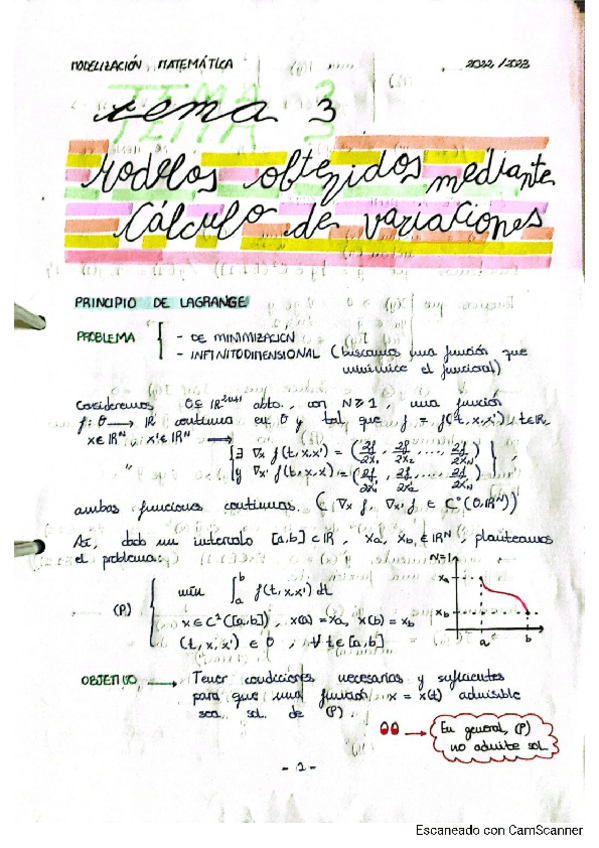 MODELIZACIÓN MATEMÁTICA 2022/2023
TEMA 3
tema 3
Modelos obtenidos mediante
Cálculo de variaciones
PRINCIPIO DE LAGRANGE
PROBLEMA { - DE MINIMIZACION
- INFINITODIMENSIONAL (buscamos una función que
minimice el funcional)
Consideremos O⊆ℝ²ᴺ⁺¹ abto., con N≥1, una función
f: O → ℝ continua en O y tal que f = f(t,x,x'), t∈ℝ,
x∈ℝᴺ, x'∈ℝᴺ → { ∃ ∇x f(t,x,x') = (∂f/∂x₁, ∂f/∂x₂, ..., ∂f/∂xN)
y ∇x' f(t,x,x') = (∂f/∂x'₁, ∂f/∂x'₂, ..., ∂f/∂x'N) },
ambas funciones continuas. (∇x f, ∇x' f ∈ C⁰(O;ℝᴺ))
Así, dado un intervalo [a,b]⊂ℝ, xa, xb ∈ℝᴺ, planteamos
el problema:
(P) { min ∫ₐᵇ f(t,x,x') dt
x∈C²([a,b]), x(a)=xa, x(b)=xb
(t,x,x') ∈ O, ∀t∈[a,b]
N=1
xa
xb
a b
OBJETIVO → Tener condiciones necesarias y suficientes
para que una función x = x(t) admisible
sea sol. de (P).
→ En general, (P)
no admite sol.
- 1 -
Escaneado con CamScanner